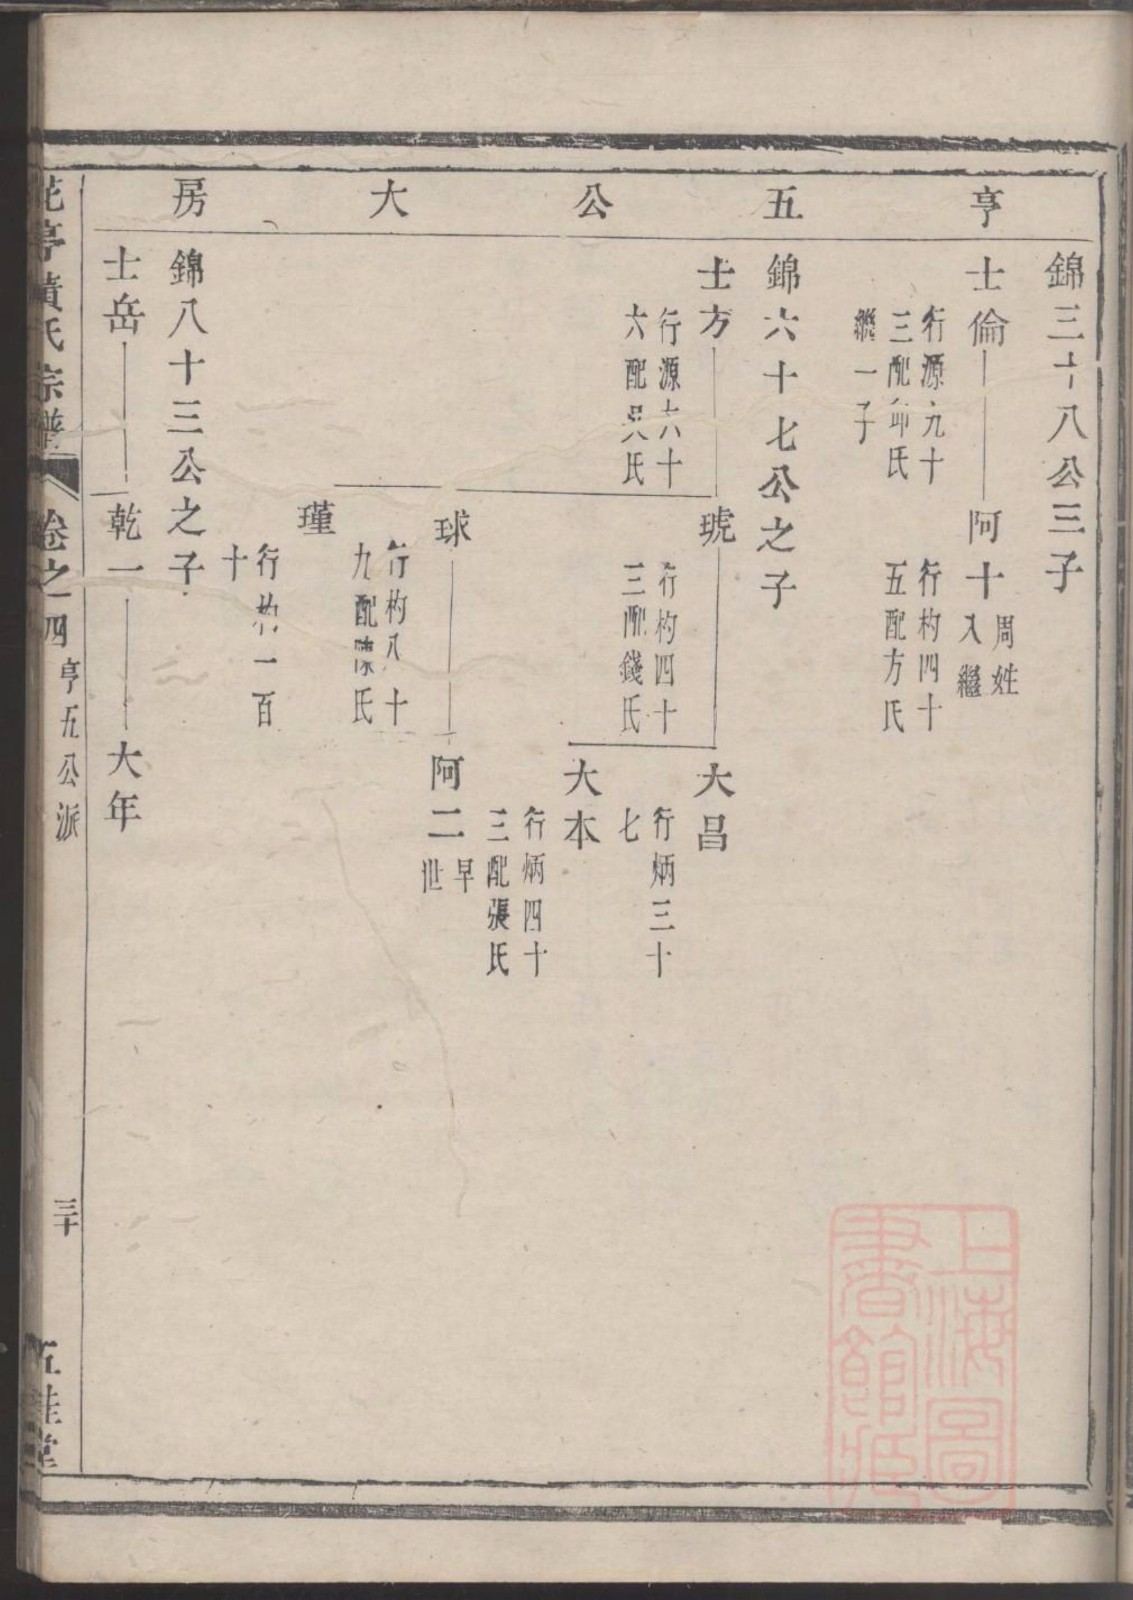 亨五公大房
錦三十八公三子
士倫
行源九十
三配邱氏
繼一子
阿十
周姓
入繼
行杓四十
五配方氏
錦六十七公之子
士方
行源六十
六配吳氏
琥
行杓四十
三配錢氏
大昌
行炳三十
七
大本
行炳四十
三配張氏
球
行杓八十
九配陳氏
阿二
早
世
瑾
行杓一百
十
錦八十三公之子
士岳
乾一
大年
花亭黃氏宗譜
卷之四
亨五公派
三十
五桂堂
上海圖
書館藏